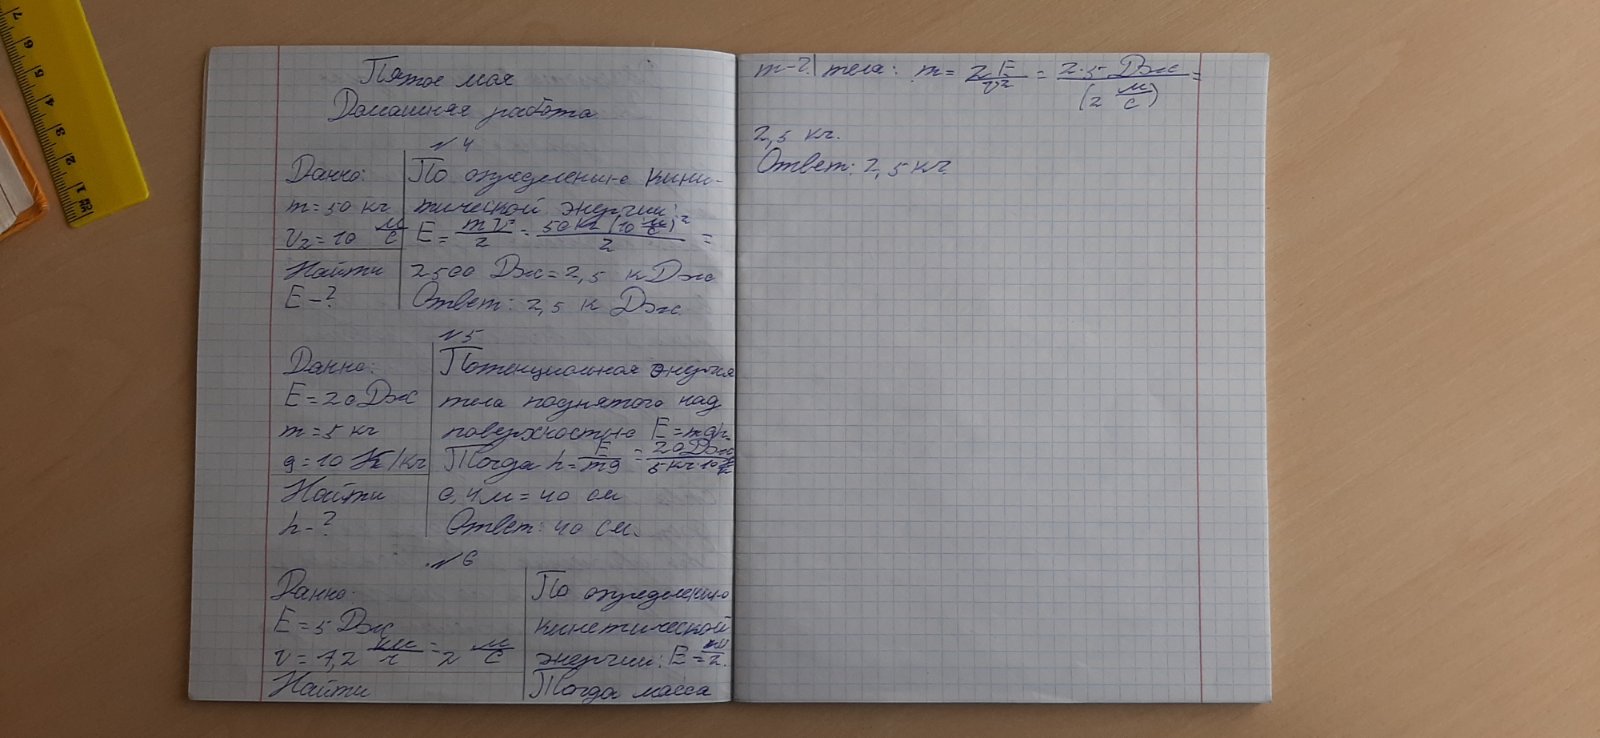 Пятое мая
Домашняя работа
№4
Дано:
m=50 кг
v₂=10 м/с
Найти
E-?
По определению кини-
тической энергии:
E= mv²/2 = 50кг(10 м/с)²/2 =
2500 Дж=2,5 кДж
Ответ: 2,5 кДж.
№5
Дано:
E=20Дж
m=5 кг
g=10 Н/кг
Найти
h-?
Потенциальная энергия
тела поднятого над
поверхностью E=mgh.
Тогда h= E/mg = 20Дж/5кг·10
0,4м=40 см
Ответ: 40 см.
№6
Дано.
E=5 Дж
v=7,2 км/ч = 2 м/с
Найти
По определению
кинетической
энергии: E=
Тогда масса
m-?
тела: m= 2E/v² = 2·5 Дж/(2 м/с) =
2,5 кг.
Ответ: 2,5 кг
7 6 5 4 3 2 1